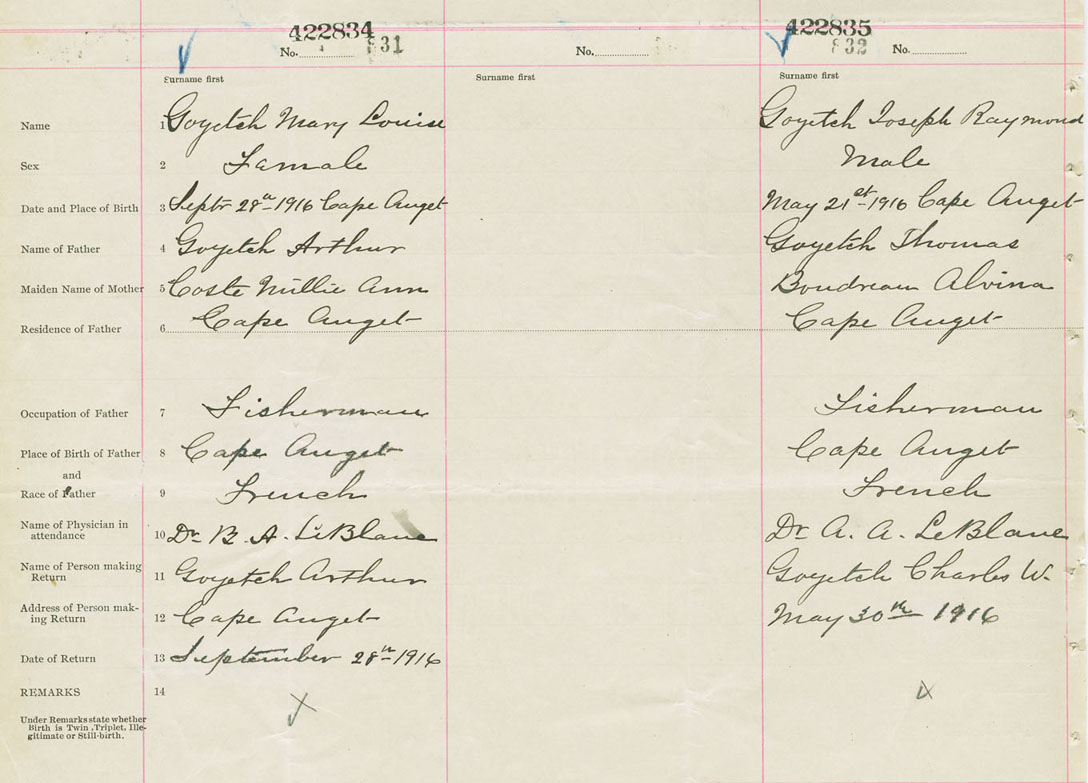 422834 422835
No. 831 No. No. 832
Surname first Surname first Surname first
Name 1 Goyetch Mary Louise Goyetch Joseph Raymond
Sex 2 Famale Male
Date and Place of Birth 3 Septr 28th 1916 Cape Auget May 21st 1916 Cape Auget
Name of Father 4 Goyetch Arthur Goyetch Thomas
Maiden Name of Mother 5 Coste Millie Ann Boudreau Alvina
Residence of Father 6 Cape Auget Cape Auget
Occupation of Father 7 Fisherman Fisherman
Place of Birth of Father 8 Cape Auget Cape Auget
and
Race of Father 9 French French
Name of Physician in
attendance 10 Dr. B. A. LeBlanc Dr. A. A. LeBlanc
Name of Person making
Return 11 Goyetch Arthur Goyetch Charles W.
Address of Person mak-
ing Return 12 Cape Auget May 30th 1916
Date of Return 13 September 28th 1916
REMARKS 14
Under Remarks state whether
Birth is Twin, Triplet, Ille-
gitimate or Still-birth.